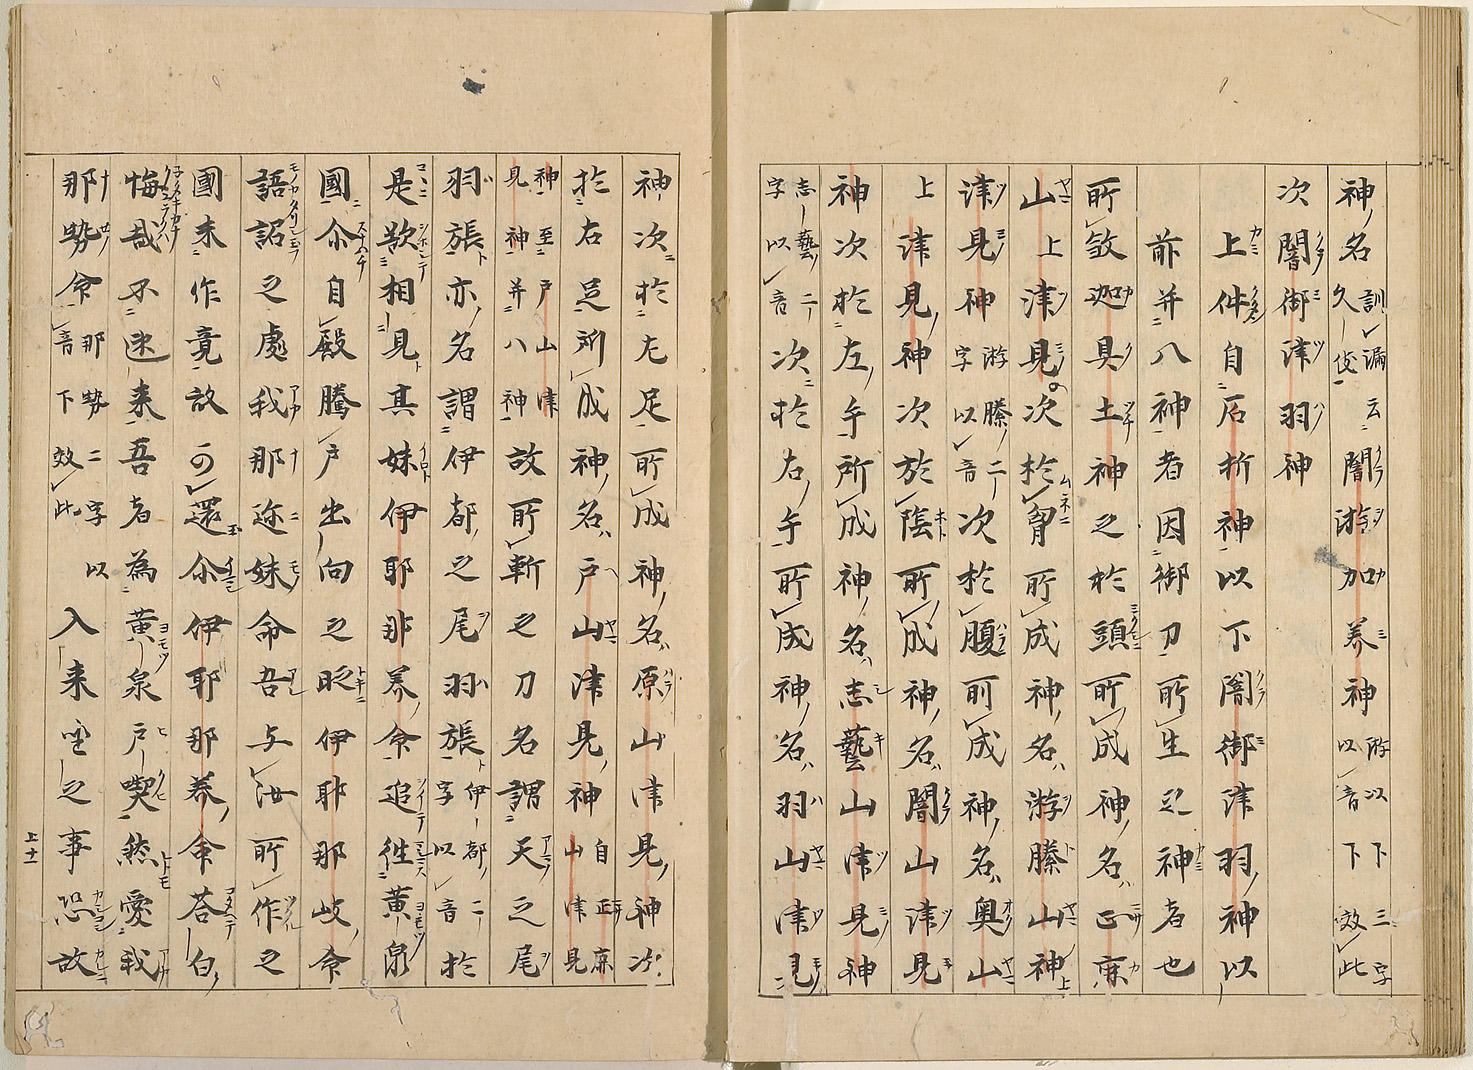 神名訓漏云久伎闇游加美神游以下三字以音下效此
次闇御津羽神
上件自石析神以下闇御津羽神以
前并八神者因御刀所生之神者也
所敘迦具土神之於頭所成神名正鹿
山上津見次於胷所成神名游縢山神
津見神游縢二字以音次於腹所成神名奥山
上津見神次於陰所成神名闇山津見
神次於左手所成神名志藝山津見神
志藝二字以音次於右手所成神名羽山津見
神次於左足所成神名原山津見神次
於右足所成神名戸山津見神自正鹿山津見
神至戸山津見神并八神故所斬之刀名謂天之尾
羽張亦名謂伊都之尾羽張伊都二字以音於
是欲相見其妹伊耶那美命追往黄泉
國尒自殿騰戸出向之時伊耶那岐命
語詔之處我那迩妹命吾与汝所作之
國未作竟故可還尒伊耶那美命荅白
悔哉不速来吾者為黄泉戸喫然愛我
那勢命那勢二字以音下效此入来坐之事恐故
上十一